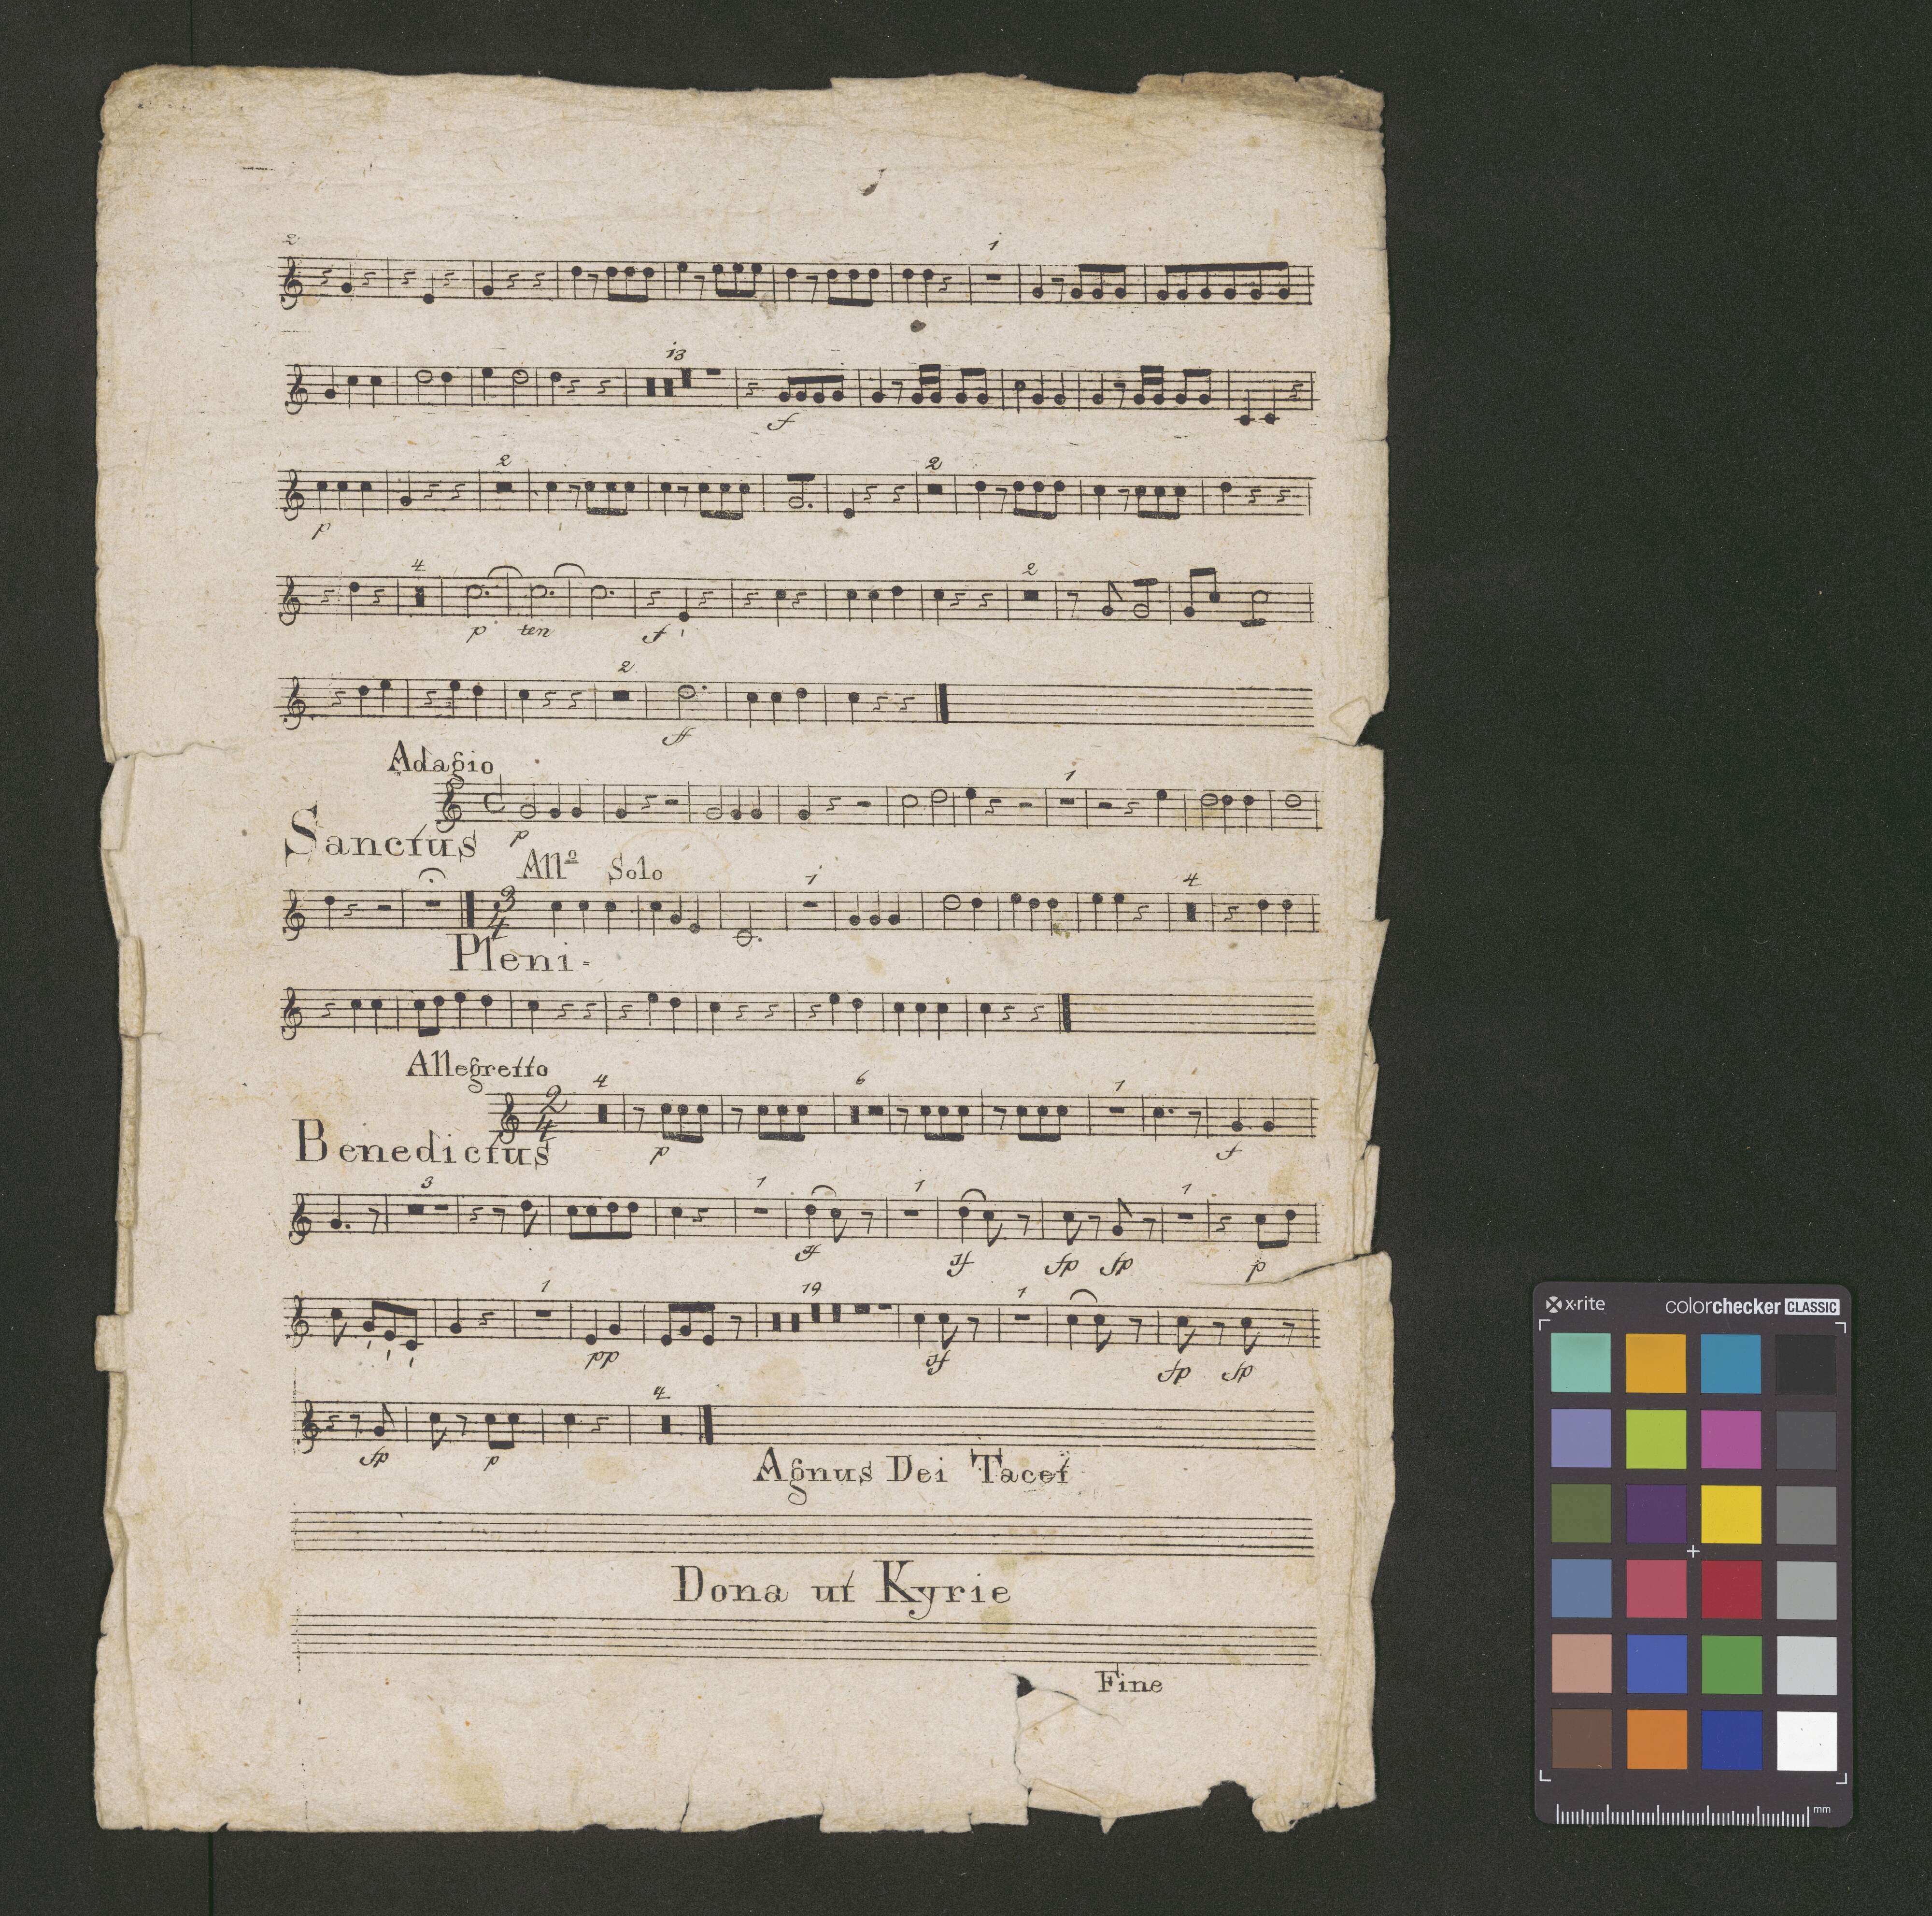 2
1
13
f
2 2
p
4 2
p ten f
2
ff
Adagio
1
p
Sanctus
Allº Solo
1 4
3
4
Pleni.
Allegretto
4 6 1
2
4
p f
Benedictus
3 1 1 1
sf sf fp fp p
1 19 1
pp sf fp fp
4
fp p
Agnus Dei Tacet
Dona ut Kyrie
Fine
x-rite colorchecker CLASSIC
mm